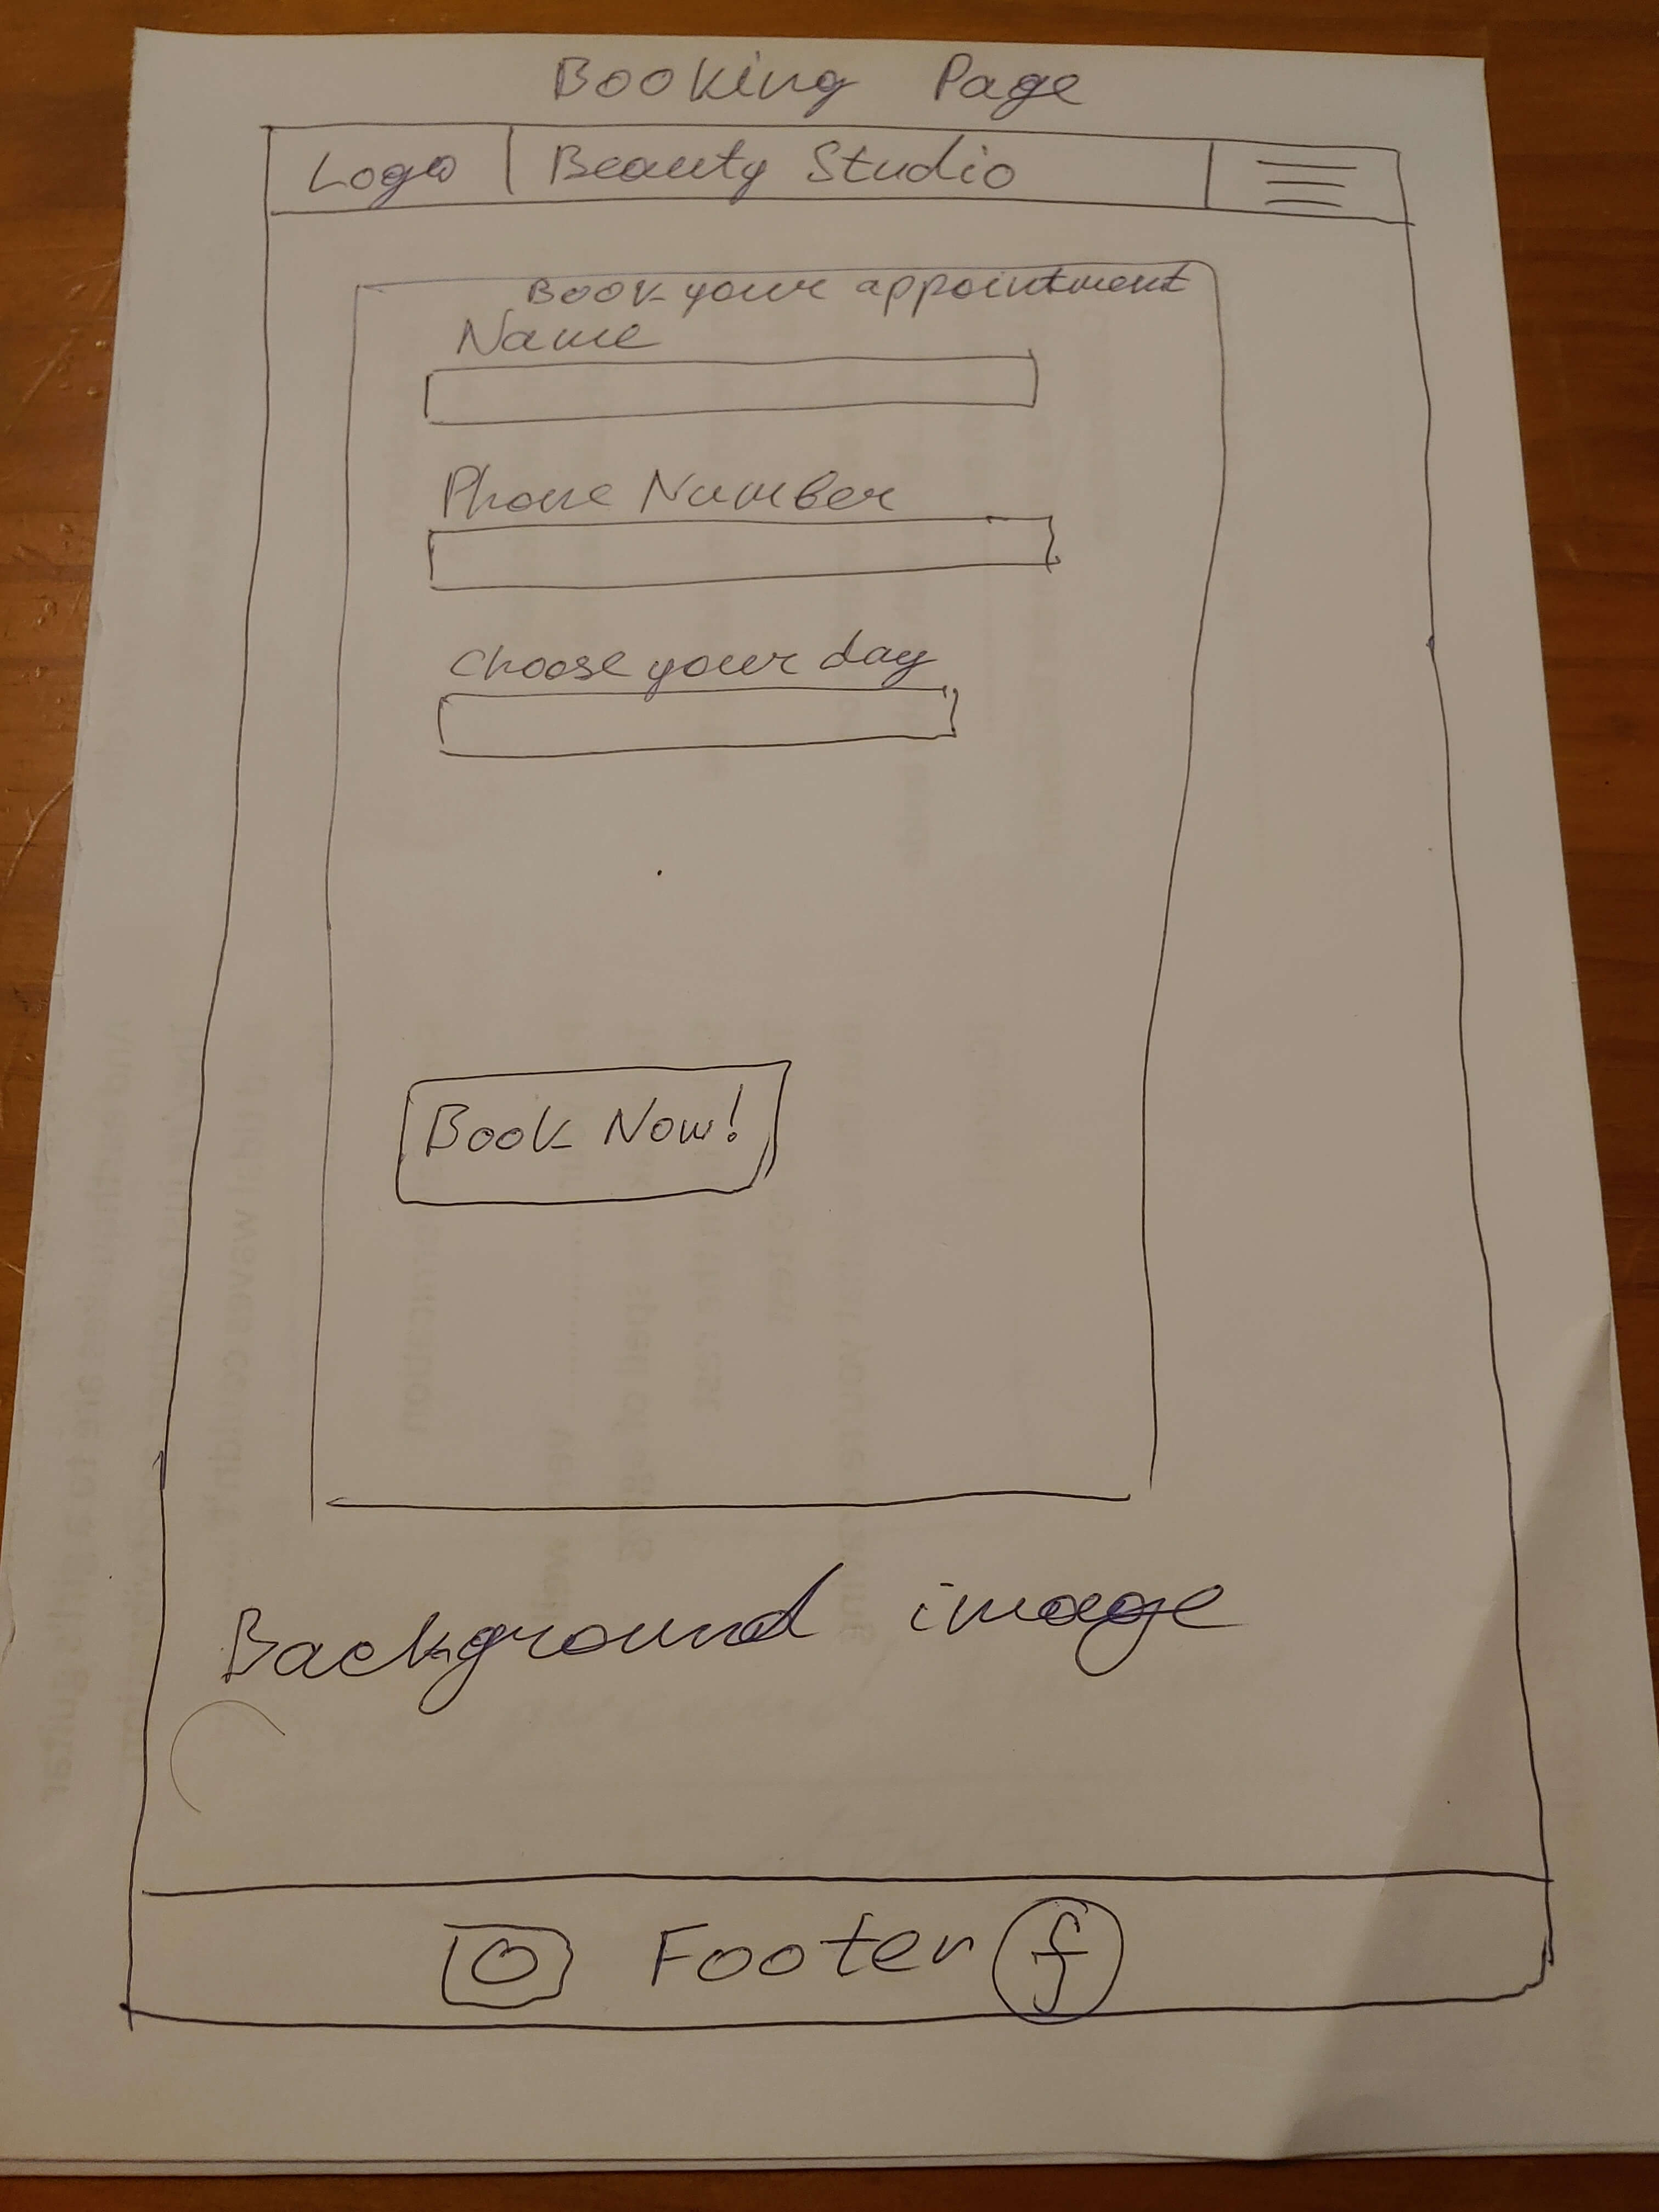 Booking Page
Logo Beauty Studio
Book your appointment
Name
Phone Number
Choose your day
Book Now!
Background image
Footer f